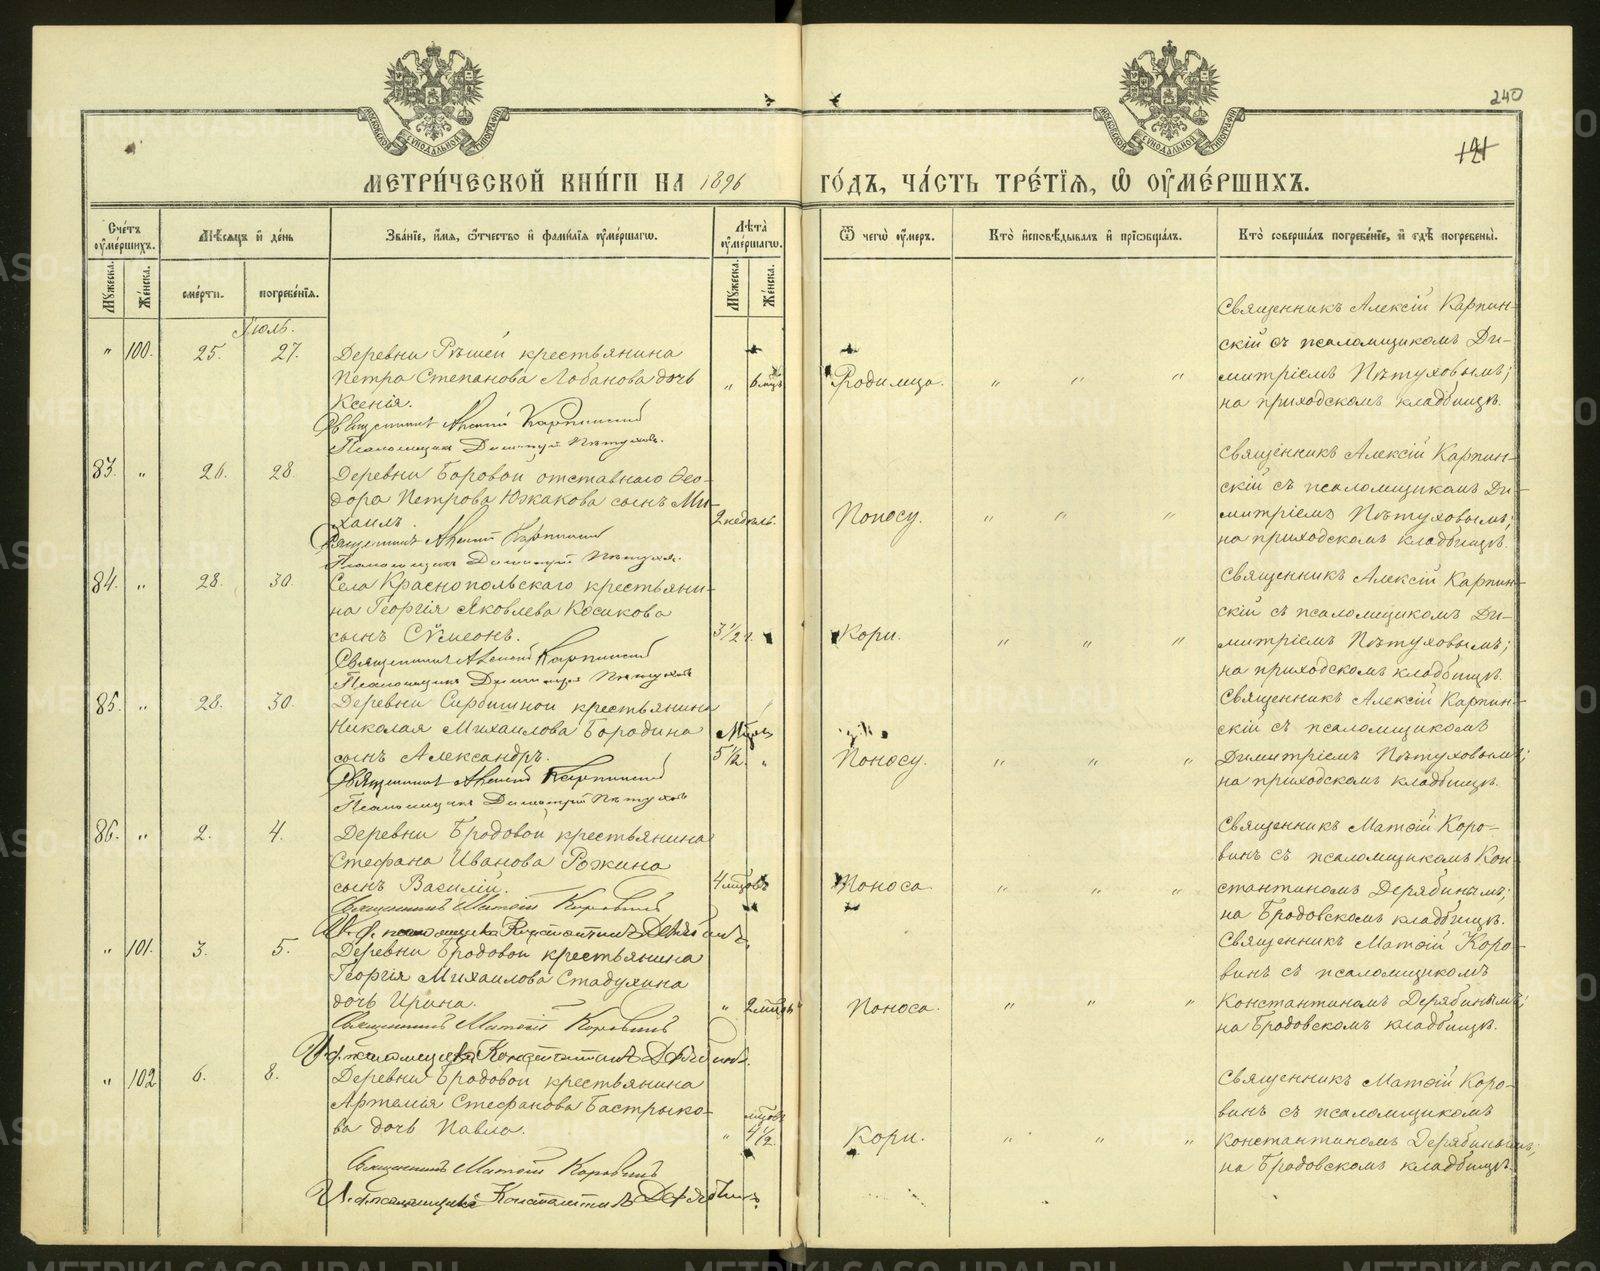 240
121
МОСКОВСКОЙ СѴНОДАЛЬНОЙ ТИПОГРАФІИ
МОСКОВСКОЙ СѴНОДАЛЬНОЙ ТИПОГРАФІИ
МЕТРИ́ЧЕСКОЙ КНИ́ГИ НА 1896 ГО́ДЪ, ЧА́СТЬ ТРЕ́ТІѦ, Ѡ҆ ОУ҆МЕ́РШИХЪ.
Сче́тъ оу҆ме́ршихъ.
Мѣ́сяцъ и҆ де́нь
Зва́нїе, и҆́мѧ, ѻ҆́тчество и҆ фами́лїѧ оу҆ме́ршагѡ.
Лѣ́та оу҆ме́ршагѡ.
Ѿ чегѡ̀ оу҆́меръ.
Кто̀ и҆сповѣ́дывалъ и҆ прїѡбща́лъ.
Кто̀ соверша́лъ погребе́нїе, и҆ гдѣ̀ погребены̀.
Мꙋ́жеска.
Же́нска.
сме́рти.
погребе́нїѧ.
Мꙋ́жеска.
Же́нска.
Іюль.
„ 100. 25. 27. Деревни Рѣшей крестьянина
Петра Степанова Лобанова дочь „ 6 мцъ
Ксенія.
Священникъ Алексій Карпинскій
Псаломщикъ Димитрій Пѣтуховъ.
Родимца. „ „ „
Священникъ Алексій Карпин-
скій съ псаломщикомъ Ди-
митріемъ Пѣтуховымъ;
на приходскомъ кладбищѣ.
83. „ 26. 28. Деревни Боровой отставнаго Ѳео-
дора Петрова Южакова сынъ Ми-
хаилъ. 2 недѣль.
Священникъ Алексій Карпинскій
Псаломщикъ Димитрій Пѣтуховъ.
Поносу. „ „ „
Священникъ Алексій Карпин-
скій съ псаломщикомъ Ди-
митріемъ Пѣтуховымъ;
на приходскомъ кладбищѣ.
84. „ 28. 30. Села Краснопольскаго крестьяни-
на Георгія Яковлева Косикова
сынъ Сѵмеонъ. 3½ г. „
Священникъ Алексій Карпинскій
Псаломщикъ Димитрій Пѣтуховъ
Кори. „ „ „
Священникъ Алексій Карпин-
скій съ псаломщикомъ Ди-
митріемъ Пѣтуховымъ;
на приходскомъ кладбищѣ.
85. „ 28. 30. Деревни Сарбишной крестьянина
Николая Михаилова Бородина Мцовъ
сынъ Александръ. 5½. „
Священникъ Алексій Карпинскій
Псаломщикъ Димитрій Пѣтуховъ
Поносу. „ „ „
Священникъ Алексій Карпин-
скій съ псаломщикомъ
Димитріемъ Пѣтуховымъ;
на приходскомъ кладбищѣ.
86. „ 2. 4. Деревни Бродовой крестьянина
Стефана Иванова Рожина
сынъ Василій. 4 мцовъ
Священникъ Матѳій Коровинъ
И. д. псаломщика Константинъ Дерябинъ.
Поноса „ „ „
Священникъ Матѳій Коро-
винъ съ псаломщикомъ Кон-
стантиномъ Дерябинымъ;
на Бродовскомъ кладбищѣ.
„ 101. 3. 5. Деревни Бродовой крестьянина
Георгія Михаилова Стадухина
дочь Ирина. „ 2 мцовъ
Священникъ Матѳій Коровинъ
И. д. псаломщика Константинъ Дерябинъ.
Поноса. „ „ „
Священникъ Матѳій Коро-
винъ съ псаломщикомъ
Константиномъ Дерябинымъ;
на Бродовскомъ кладбищѣ.
„ 102 6. 8. Деревни Бродовой крестьянина
Артемія Стефанова Бастрыко- мцовъ
ва дочь Павла. „ 4½.
Священникъ Матѳій Коровинъ
И. д. псаломщика Константинъ Дерябинъ.
Кори. „ „ „
Священникъ Матѳій Коро-
винъ съ псаломщикомъ
Константиномъ Дерябинымъ;
на Бродовскомъ кладбищѣ.